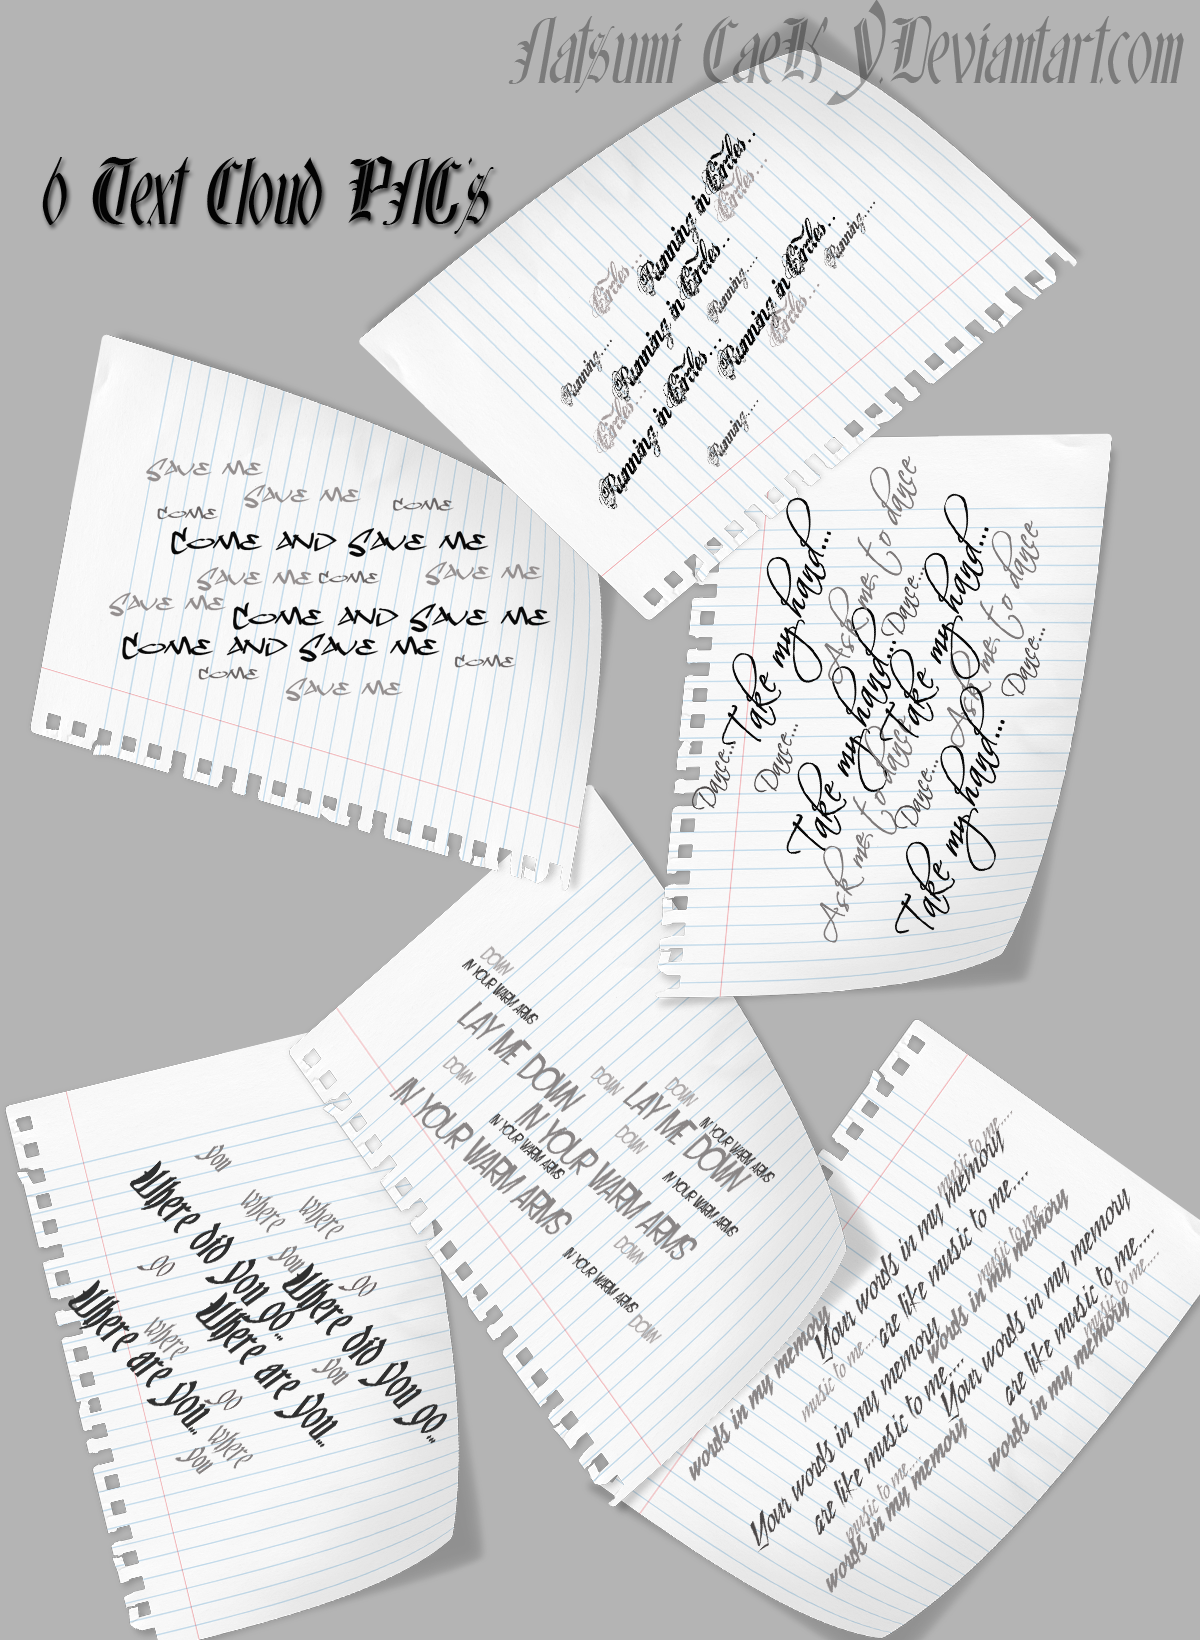 Natsumi CaeK Y.Deviantart.com
6 Text Cloud PNG's
Circles...
Running in Circles...
Circles...
Running in Circles...
Running....
Running....
Running in Circles...
Running....
Circles...
Circles...
Running in Circles...
Running....
SAVE ME
SAVE ME
COME
COME
COME AND SAVE ME
SAVE ME
COME
SAVE ME
SAVE ME
COME AND SAVE ME
COME AND SAVE ME
COME
COME
SAVE ME
Take my hand...
Ask me to dance
Dance...
Dance...
Take my hand...
Dance...
Take my hand...
Ask me to dance
Dance...
Ask me to dance
Dance...
Take my hand...
DOWN
IN YOUR WARM ARMS
LAY ME DOWN
DOWN
IN YOUR WARM ARMS
DOWN
DOWN
LAY ME DOWN
IN YOUR WARM ARMS
IN YOUR WARM ARMS
IN YOUR WARM ARMS
DOWN
IN YOUR WARM ARMS
DOWN
IN YOUR WARM ARMS
DOWN
you
Where did you go...
where
where
you
go
go
Where did you go...
Where are you...
where
Where are you...
you
go
where
you
music to me....
Your words in my memory
are like music to me....
music to me....
words in my memory
words in my memory
music to me....
Your words in my memory
are like music to me....
music to me....
words in my memory
Your words in my memory
are like music to me....
music to me....
words in my memory